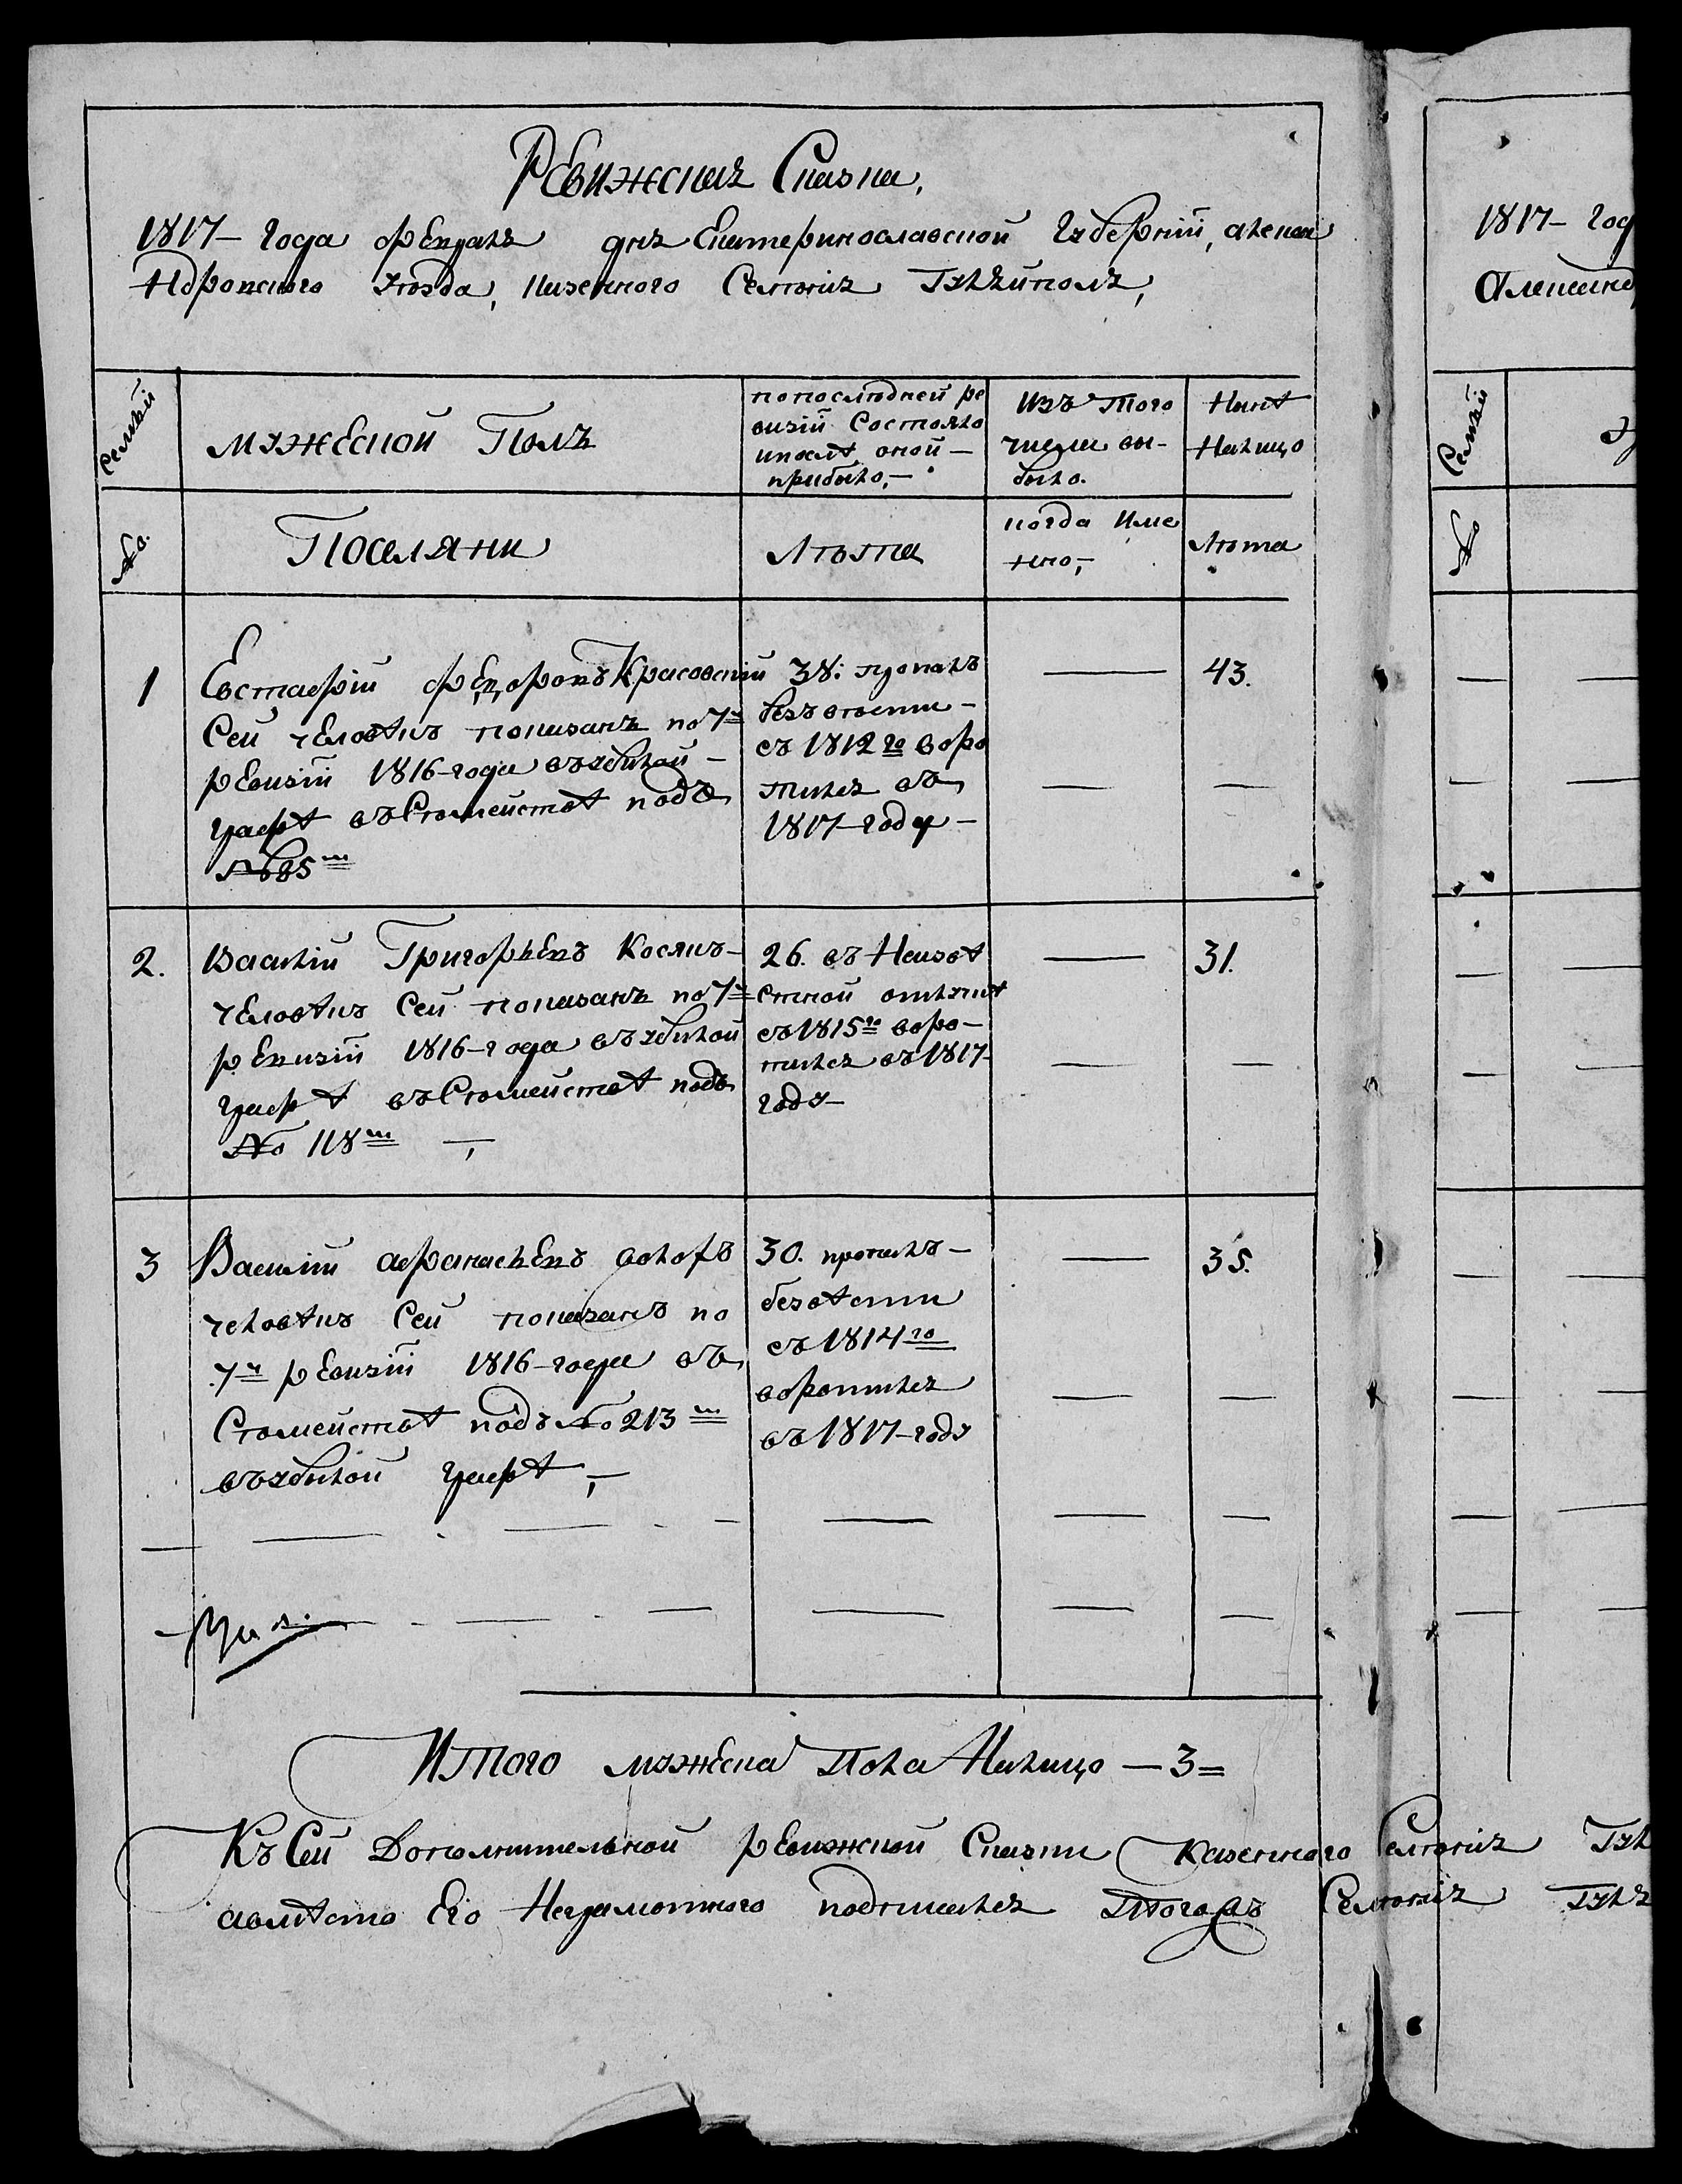 Ревижская Сказка,
1817– года февраля дня Екатеринославской губерніи, алекса
ндровского уезда, казенного Селенія Гуляйполя,
Семьи
мужеской Полъ
по последней ре
визіи Состояло
и после оной –
прибыло,–
Изъ того
числа вы-
было.
Ныне
налицо
№.
Поселяни
Лета
когда Име
нно,–
Лета
1
Евстафій Федоровъ Красовскій
Сей человекъ показанъ по 7й
ревизіи 1816–года въ убылой –
графе въ Семействе подъ
№85м
38. пропалъ
безъ вести –
съ 1812го воро
тился въ
1817–году –
43.
2.
Василій Григорьевъ Кослик–
человекъ Сей показанъ по 7й
ревизіи 1816–года въ убылой
графе въ Семействе подъ
№ 118м –,
26. въ Неизве
стной отлучке
съ 1815го воро–
тился въ 1817–
году–
31.
3
Василій афанасьевъ
человекъ Сей показанъ по
7й ревизіи 1816–года въ
Семействе подъ №213м
въ убылой графе,–
30. пропалъ –
без вести
съ 1814го
воротился
въ 1817–году
35.
Итого мужеска Пола Налицо — 3 =
Къ Сей Дополнительной ревижской Сказки Казенного Селенія Гул
а вместо Его Неграмотного подписался Тогожъ Селенія Гуля
1817– год
Александ
Семьи
№